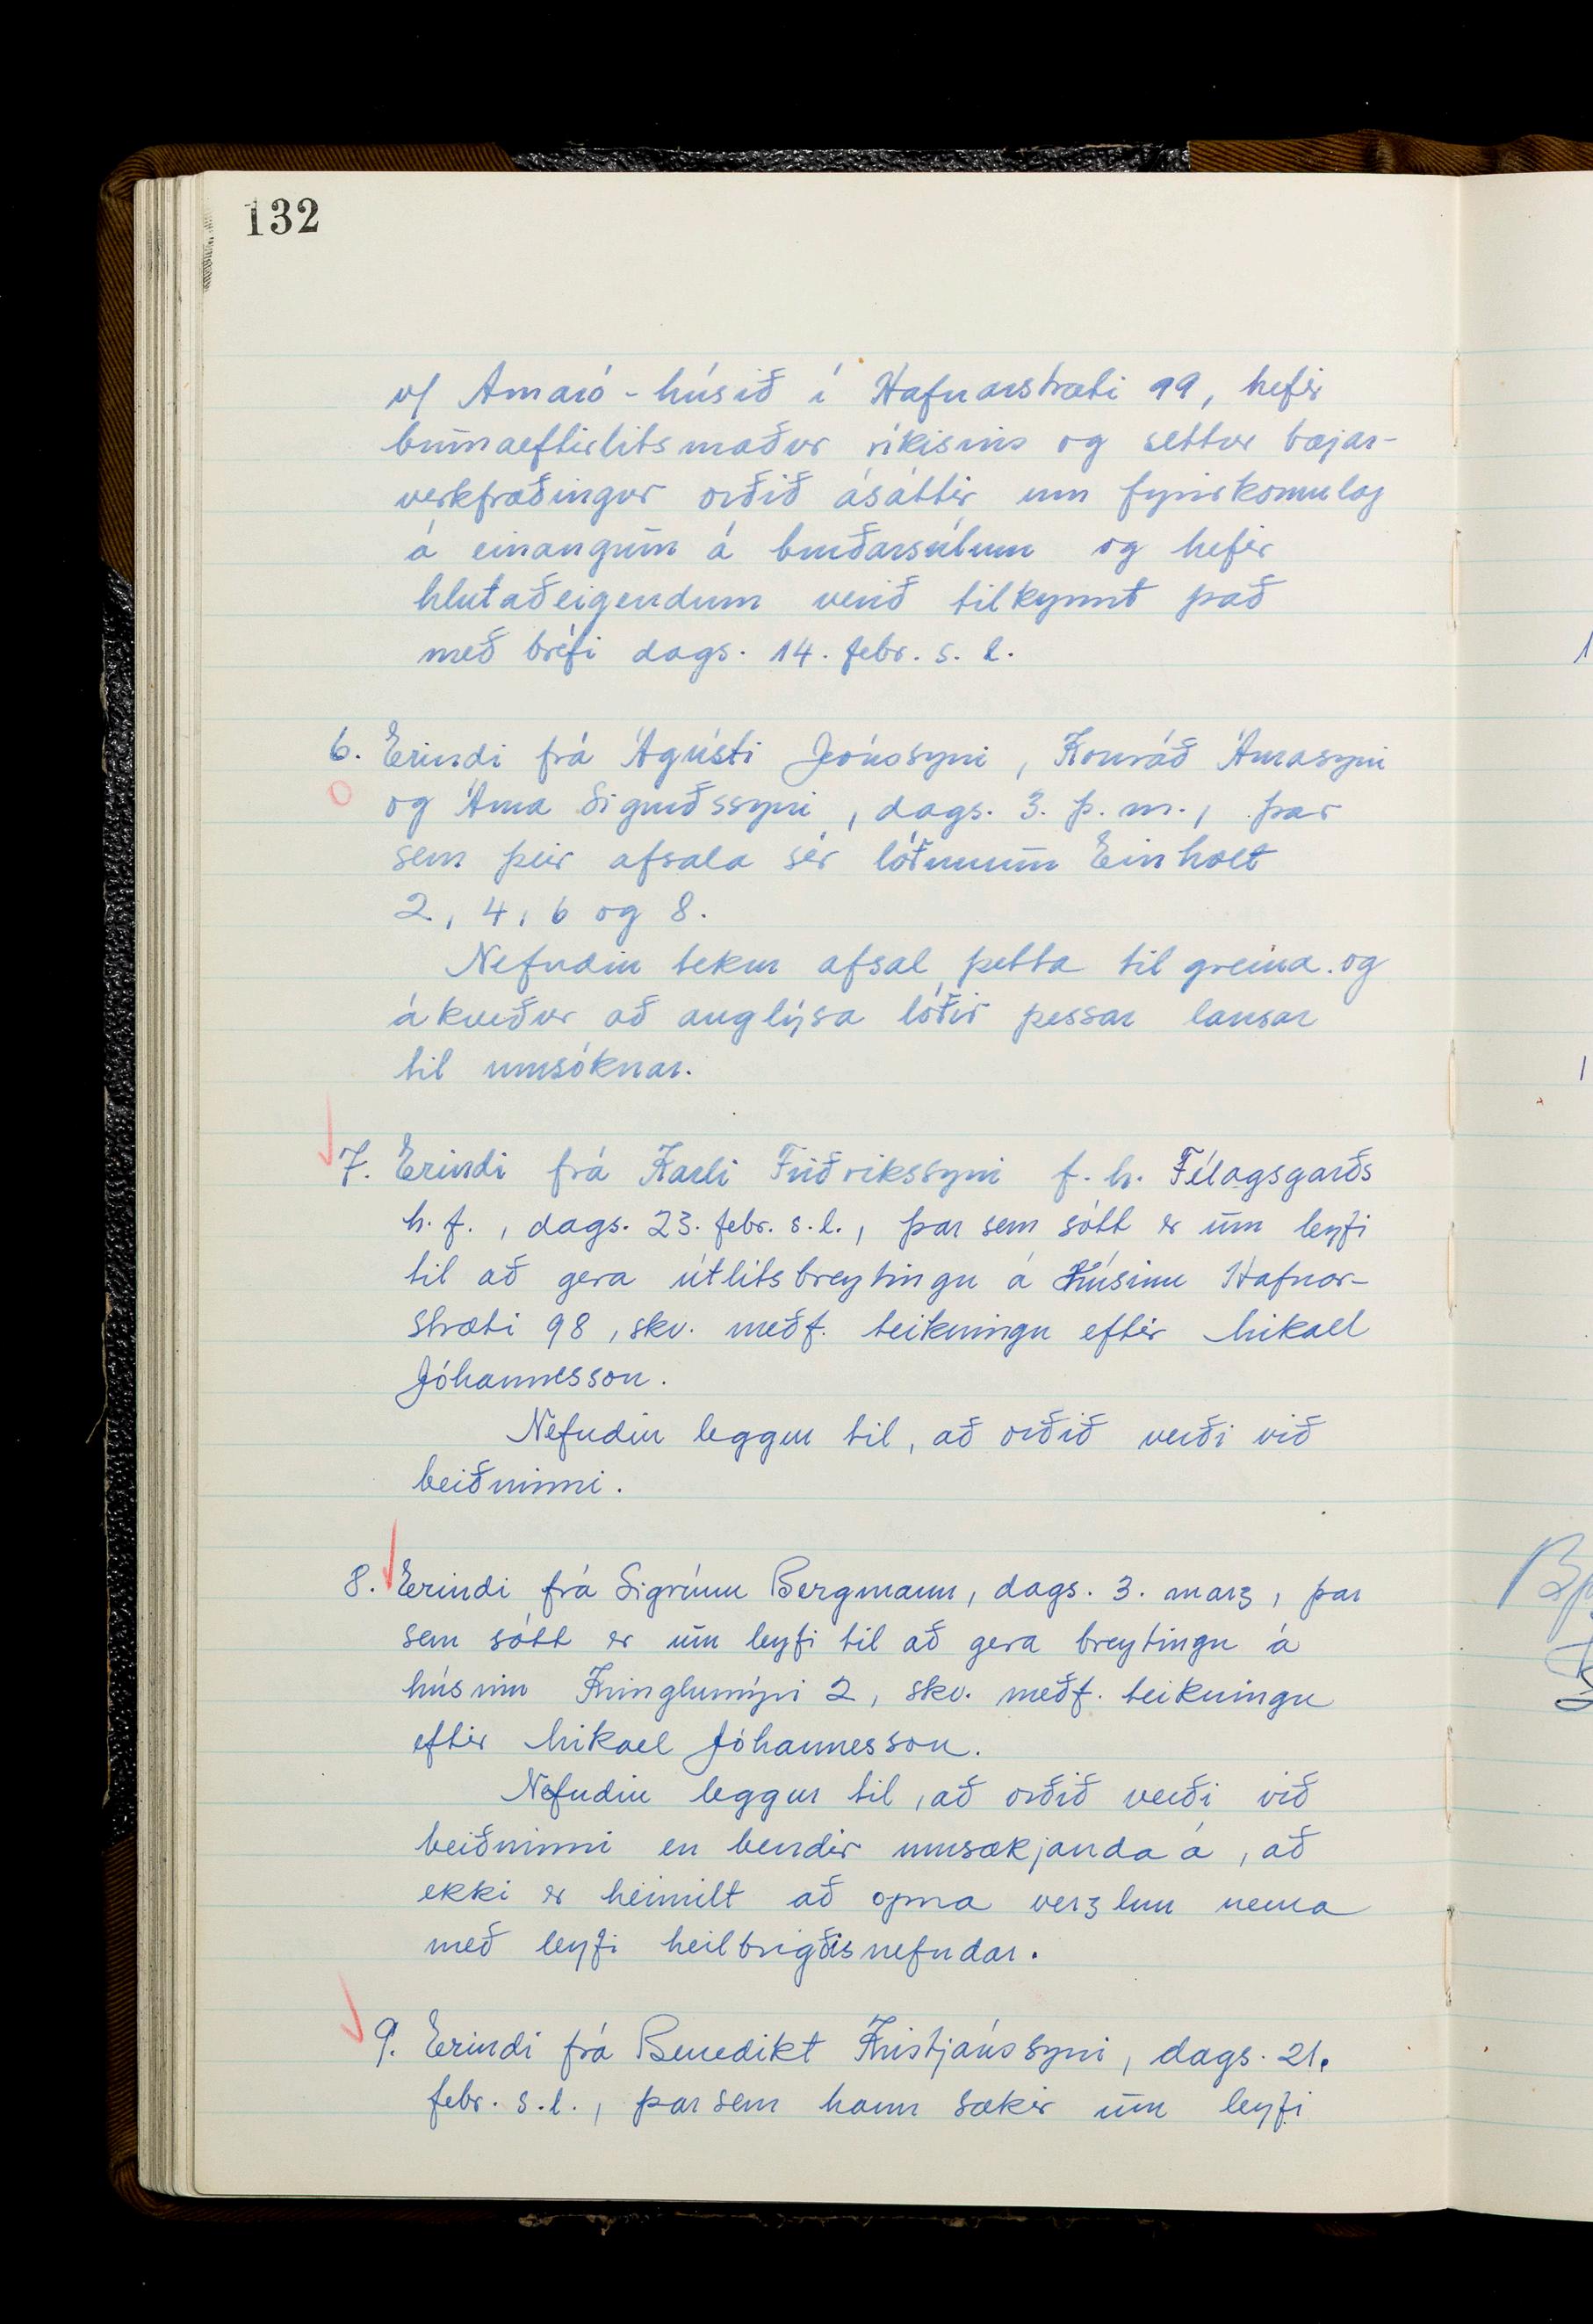 132
v/ Amaró-húsið í Hafnarstræti 99, hefir
brunaeftirlitsmaður ríkisins og settur bæjar-
verkfræðingur orðið ásáttir um fyrirkomulag
á einangrun á burðarsúlum og hefir
hlutaðeigendum verið tilkynnt það
með bréfi dags. 14. febr. s. l.
6. Erindi frá Ágústi Jónssyni, Konráð Árnasyni
og Árna Sigurðssyni, dags. 3. þ. m., þar
sem þeir afsala sér lóðunum Einholt
2, 4, 6 og 8.
Nefndin tekur afsal þetta til greina og
ákveður að auglýsa lóðir þessar lausar
til umsóknar.
7. Erindi frá Karli Friðrikssyni f. h. Félagsgarðs
h. f., dags. 23. febr. s. l., þar sem sótt er um leyfi
til að gera útlitsbreytingu á húsinu Hafnar-
stræti 98, skv. meðf. teikningu eftir Mikael
Jóhannesson.
Nefndin leggur til, að orðið verði við
beiðninni.
8. Erindi frá Sigrúnu Bergmann, dags. 3. marz, þar
sem sótt er um leyfi til að gera breytingu á
húsinu Kringlumýri 2, skv. meðf. teikningu
eftir Mikael Jóhannesson.
Nefndin leggur til, að orðið verði við
beiðninni en bendir umsækjanda á, að
ekki er heimilt að opna verzlun nema
með leyfi heilbrigðisnefndar.
9. Erindi frá Benedikt Kristjánssyni, dags. 21.
febr. s.l., þar sem hann sækir um leyfi